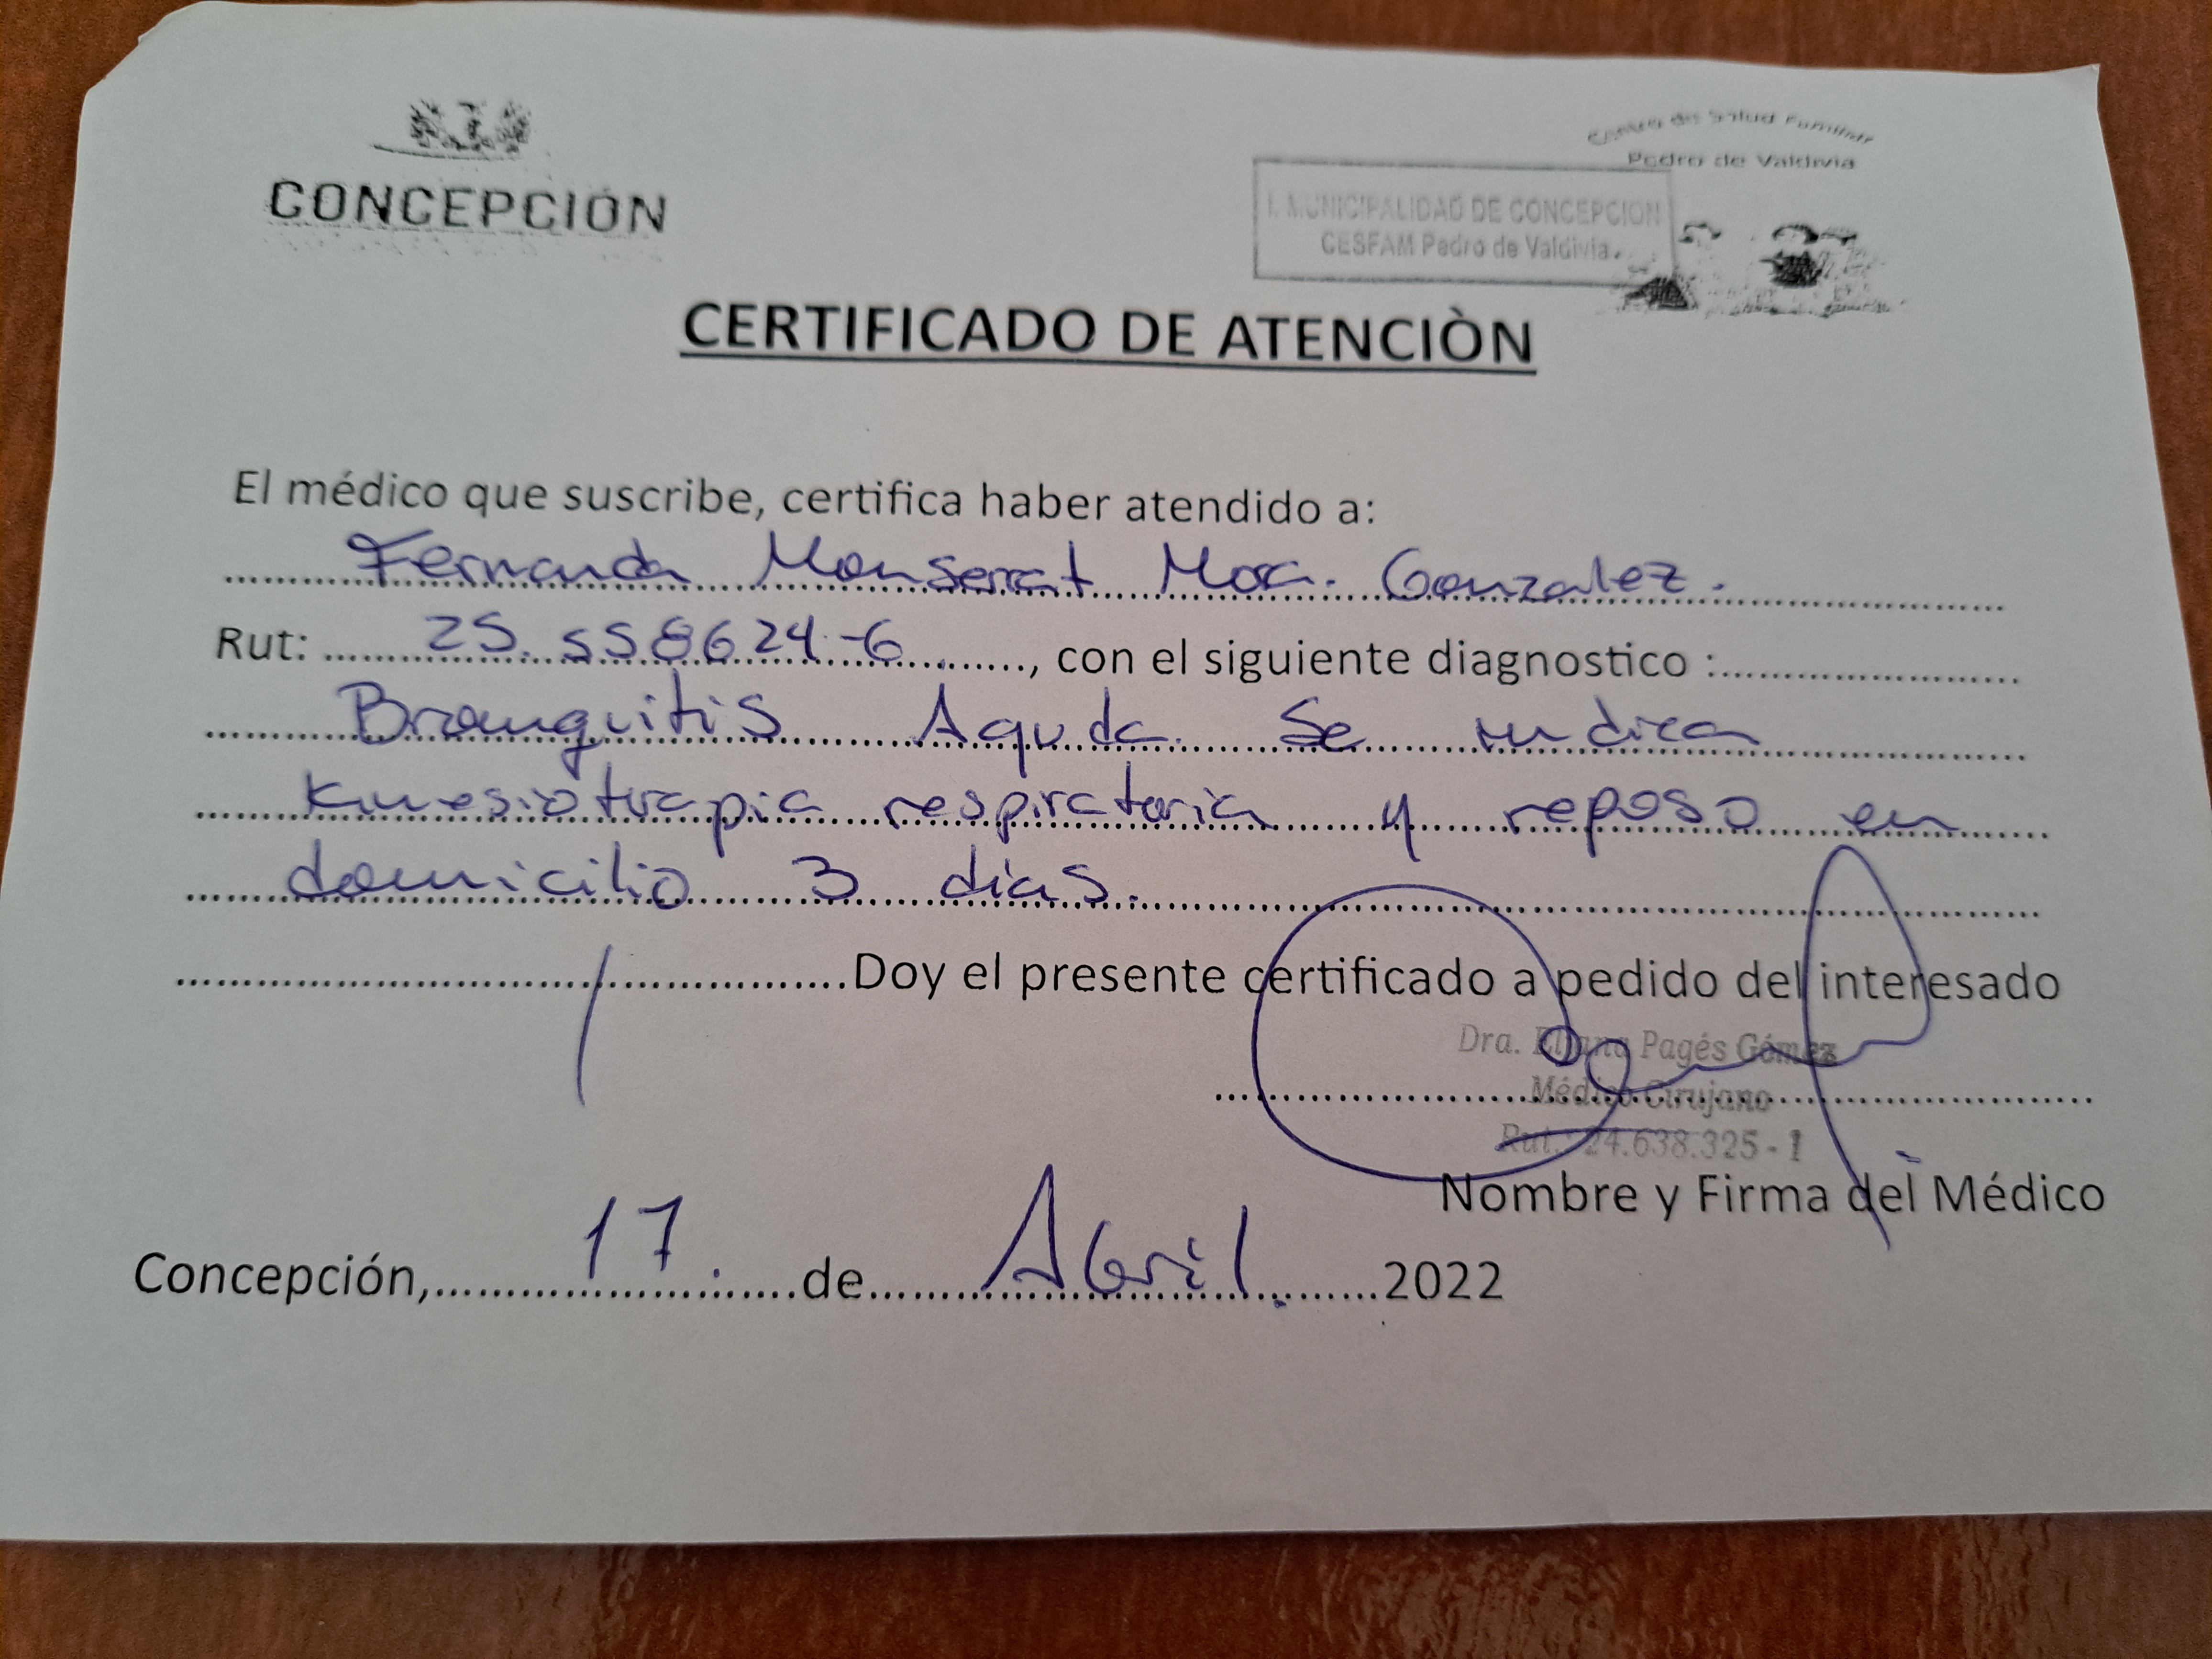 CONCEPCIÓN
Centro de Salud Familiar
Pedro de Valdivia
I. MUNICIPALIDAD DE CONCEPCION
CESFAM Pedro de Valdivia
CERTIFICADO DE ATENCIÒN
El médico que suscribe, certifica haber atendido a:
Fernanda Monserrat Mora. Gonzalez.
Rut: 25.558624-6, con el siguiente diagnostico :
Bronquitis Aguda. Se indica
kinesioterapia respiratoria y reposo en
domicilio 3 días.
Doy el presente certificado a pedido del interesado
Dra. Eliana Pagés Gómez
Médico Cirujano
Rut.: 24.638.325-1
Nombre y Firma del Médico
Concepción, 17. de Abril. 2022